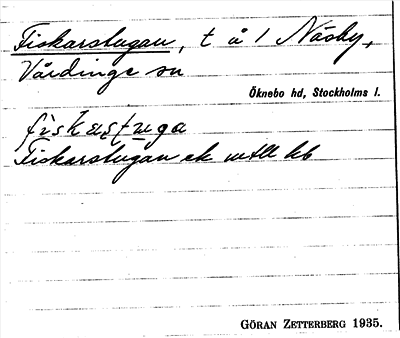 Fiskarstugan, t å 1 Näsby,
Vårdinge sn
Öknebo hd, Stockholms l.
fìskastùga
Fiskarstugan ek utth kb
GÖRAN ZETTERBERG 1935.